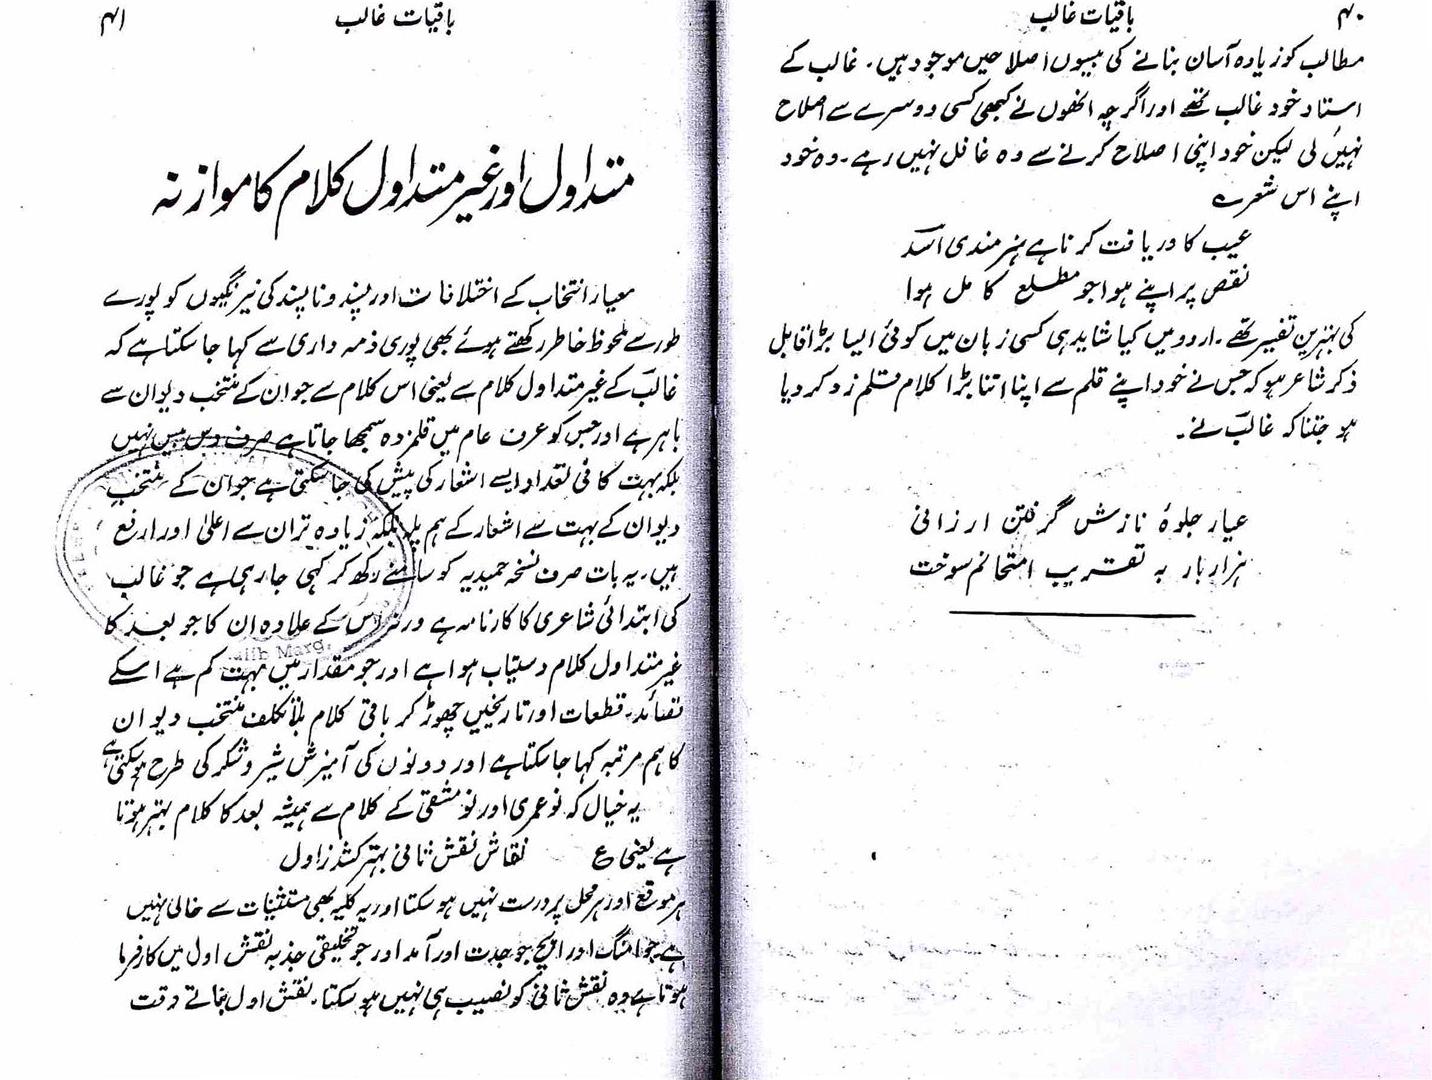 ۴۰
باقیات غالب
مطالب کو زیادہ آسان بنانے کی بیسیوں اصلاحیں موجود ہیں۔ غالب کے
استاد خود غالب تھے اور اگرچہ انھوں نے کبھی کسی دوسرے سے اصلاح
نہیں لی لیکن خود اپنی اصلاح کرنے سے وہ غافل نہیں رہے۔ وہ خود
اپنے اس شعر ؎
عیب کا دریافت کرنا ہے ہنرمندی اسدؔ
نقص پر اپنے ہوا جو مطلع کامل ہوا
کی بہترین تفسیر تھے۔ اردو میں کیا شاید ہی کسی زبان میں کوئی ایسا بڑا قابل
ذکر شاعر ہو کہ جس نے خود اپنے قلم سے اپنا اتنا بڑا کلام قلم زد کر دیا
ہو جتنا کہ غالبؔ نے۔
عیار جلوۂ نازش گرفتن ارزانی
ہزار بار بہ تقریب امتحانم سوخت
باقیات غالب
۴۱
متداول اور غیر متداول کلام کا موازنہ
معیار انتخاب کے اختلافات اور پسند و ناپسند کی نیرنگیوں کو پورے
طور سے ملحوظ خاطر رکھتے ہوئے بھی پوری ذمہ داری سے کہا جا سکتا ہے کہ
غالبؔ کے غیر متداول کلام سے یعنی اس کلام سے جو ان کے منتخب دیوان سے
باہر ہے اور جس کو عرف عام میں قلمزدہ سمجھا جاتا ہے صرف دس بیس نہیں
بلکہ بہت کافی تعداد ایسے اشعار کی پیش کی جا سکتی ہے جو ان کے منتخب
دیوان کے بہت سے اشعار کے ہم پلہ بلکہ زیادہ تر ان سے اعلیٰ اور ارفع
ہیں۔ یہ بات صرف نسخہ حمیدیہ کو سامنے رکھ کر کہی جا رہی ہے جو غالب
کی ابتدائی شاعری کا کارنامہ ہے ورنہ اس کے علاوہ ان کا جو بعد کا
غیر متداول کلام دستیاب ہوا ہے اور جو مقدار میں بہت کم ہے اسکے
قصائد۔ قطعات اور تاریخیں چھوڑ کر باقی کلام بلا تکلف منتخب دیوان
کا ہم مرتبہ کہا جا سکتا ہے اور دونوں کی آمیزش شیر و شکر کی طرح ہو سکتی ہے
یہ خیال کہ نو عمری اور نو مشقی کے کلام سے ہمیشہ بعد کا کلام بہتر ہوتا
ہے یعنی ع نقاش نقش ثانی بہتر کشد ز اول
ہر موقع اور ہر محل پر درست نہیں ہو سکتا اور یہ کلیہ بھی مستثنیات سے خالی نہیں
ہے جو امنگ اور اپج جو جدت اور آمد اور جو تخلیقی جذبہ نقش اول میں کارفرما
ہوتا ہے وہ نقش ثانی کو نصیب ہی نہیں ہو سکتا۔ نقش اول بناتے وقت
alib Marg,